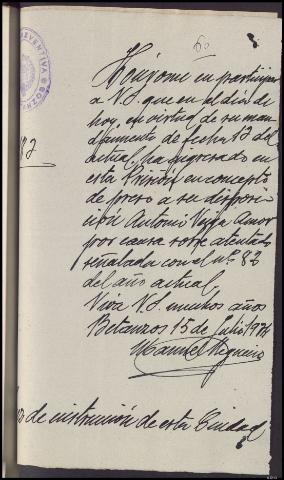 60
Hónrome en participar
a V.S. que en el día de
hoy, en virtud de su man
damiento de fecha 12 del
actual, ha ingresado en
esta Prisión en concepto
de preso a su disposi
ción Antonio Veiga Amor
por causa sobre atentado
señalada con el nº 82
del año actual.
Viva V.S. muchos años
Betanzos 15 de Julio 1936
Manuel Reguero
de instrucción de esta Ciudad